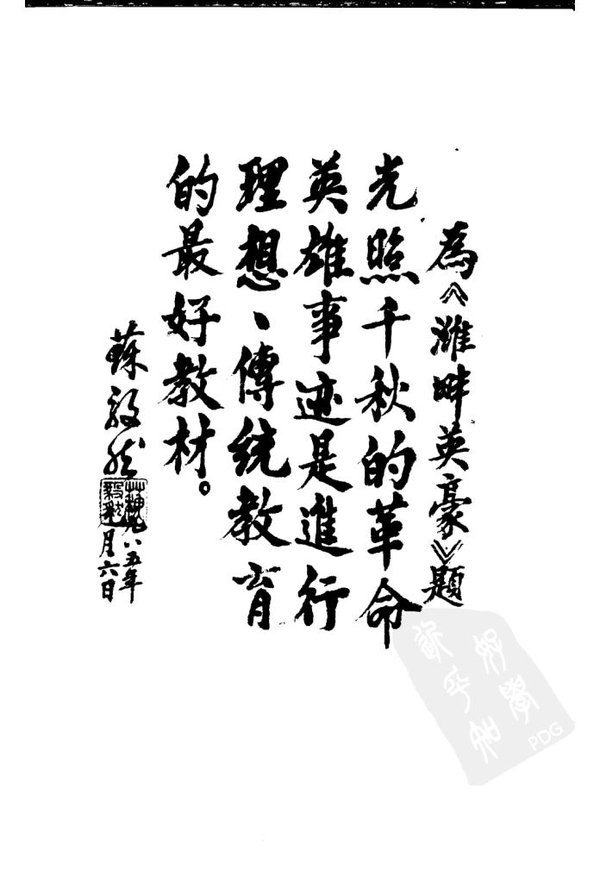 為《濰畔英豪》題
光照千秋的革命
英雄事迹是進行
理想、傳統教育
的最好教材。
蘇毅然
八五年
月六日
蘇毅然
好學
PDG